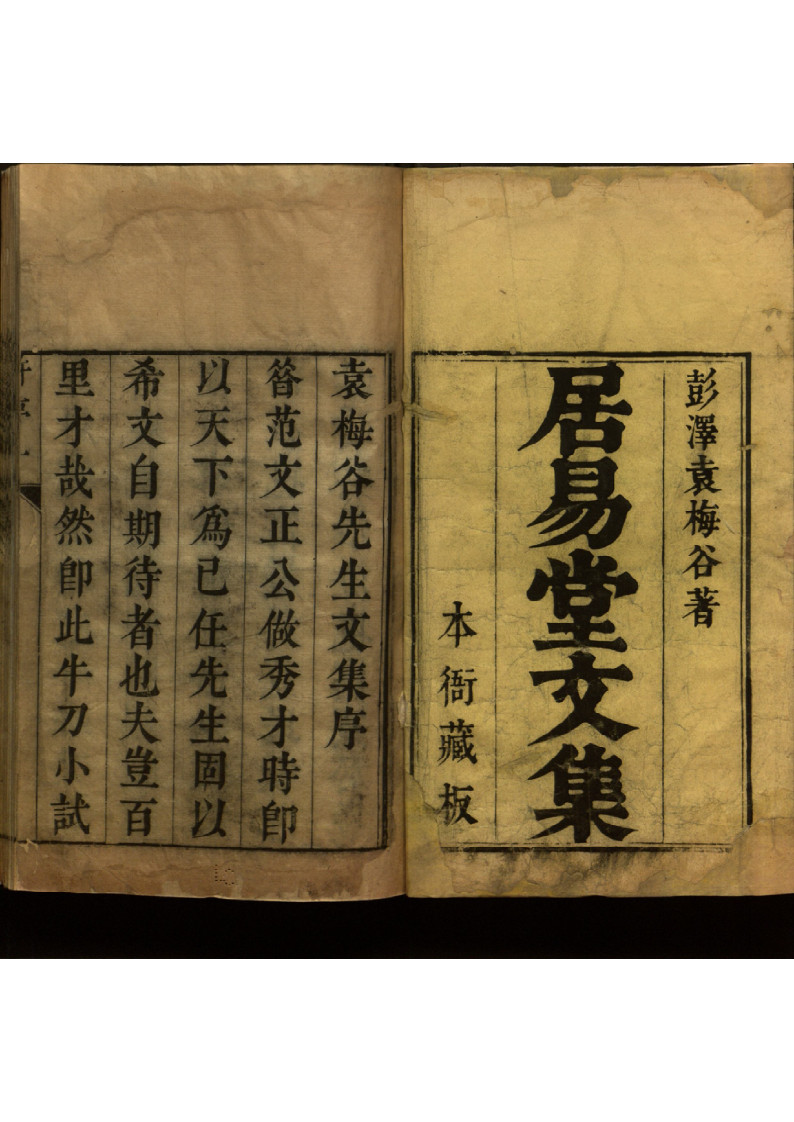 彭澤袁梅谷著
居易堂文集
本衙藏板
袁梅谷先生文集序
昝范文正公做秀才時卽
以天下爲己任先生固以
希文自期待者也夫豈百
里才哉然卽此牛刀小試